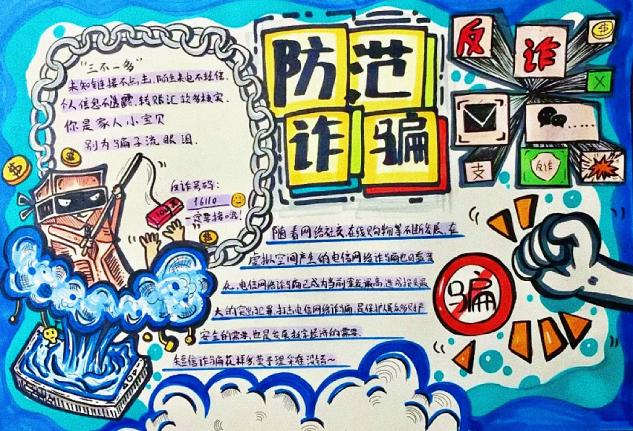 防范
诈骗
反诈
支
反诈
"三不一多"
未知链接不点击,陌生来电不轻信,
个人信息不透露,转账汇款多核实.
你是家人小宝贝
别为骗子流眼泪.
反诈号码:
一定要接哦!
随着网络社交、在线购物等不断发展,在
虚拟空间产生的电信网络诈骗也日益变
化,电信网络诈骗已成为当前发案最高、造成损失最
大的突出犯罪.打击电信网络诈骗,是保护人民群众财产
安全的需要,也是发展数字经济的需要.
骗